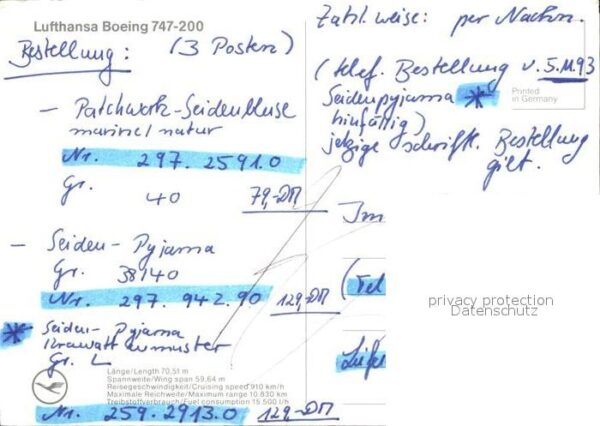 Lufthansa Boeing 747-200
Bestellung: (3 Posten)
— Patchwork-Seidenbluse
marine/natur
Nr. 297.2591.0
Gr. 40 79,-DM
— Seiden-Pyjama
Gr. 38/40
Nr. 297.942.90 129,-DM
* Seiden-Pyjama
Krawattenmuster
Gr. L
Länge/Length 70,51 m
Spannweite/Wing span 59,64 m
Reisegeschwindigkeit/Cruising speed 910 km/h
Maximale Reichweite/Maximum range 10.830 km
Treibstoffverbrauch/Fuel consumption 15 500 l/h
Nr. 259.2913.0 129,-DM
Zahlweise: per Nachn.
(telef. Bestellung v. 5.11.93
Seidenpyjama *
hinfällig)
jetzige schriftl. Bestellung
gilt.
Printed
in Germany
Im
(Tel
Liefer
privacy protection
Datenschutz